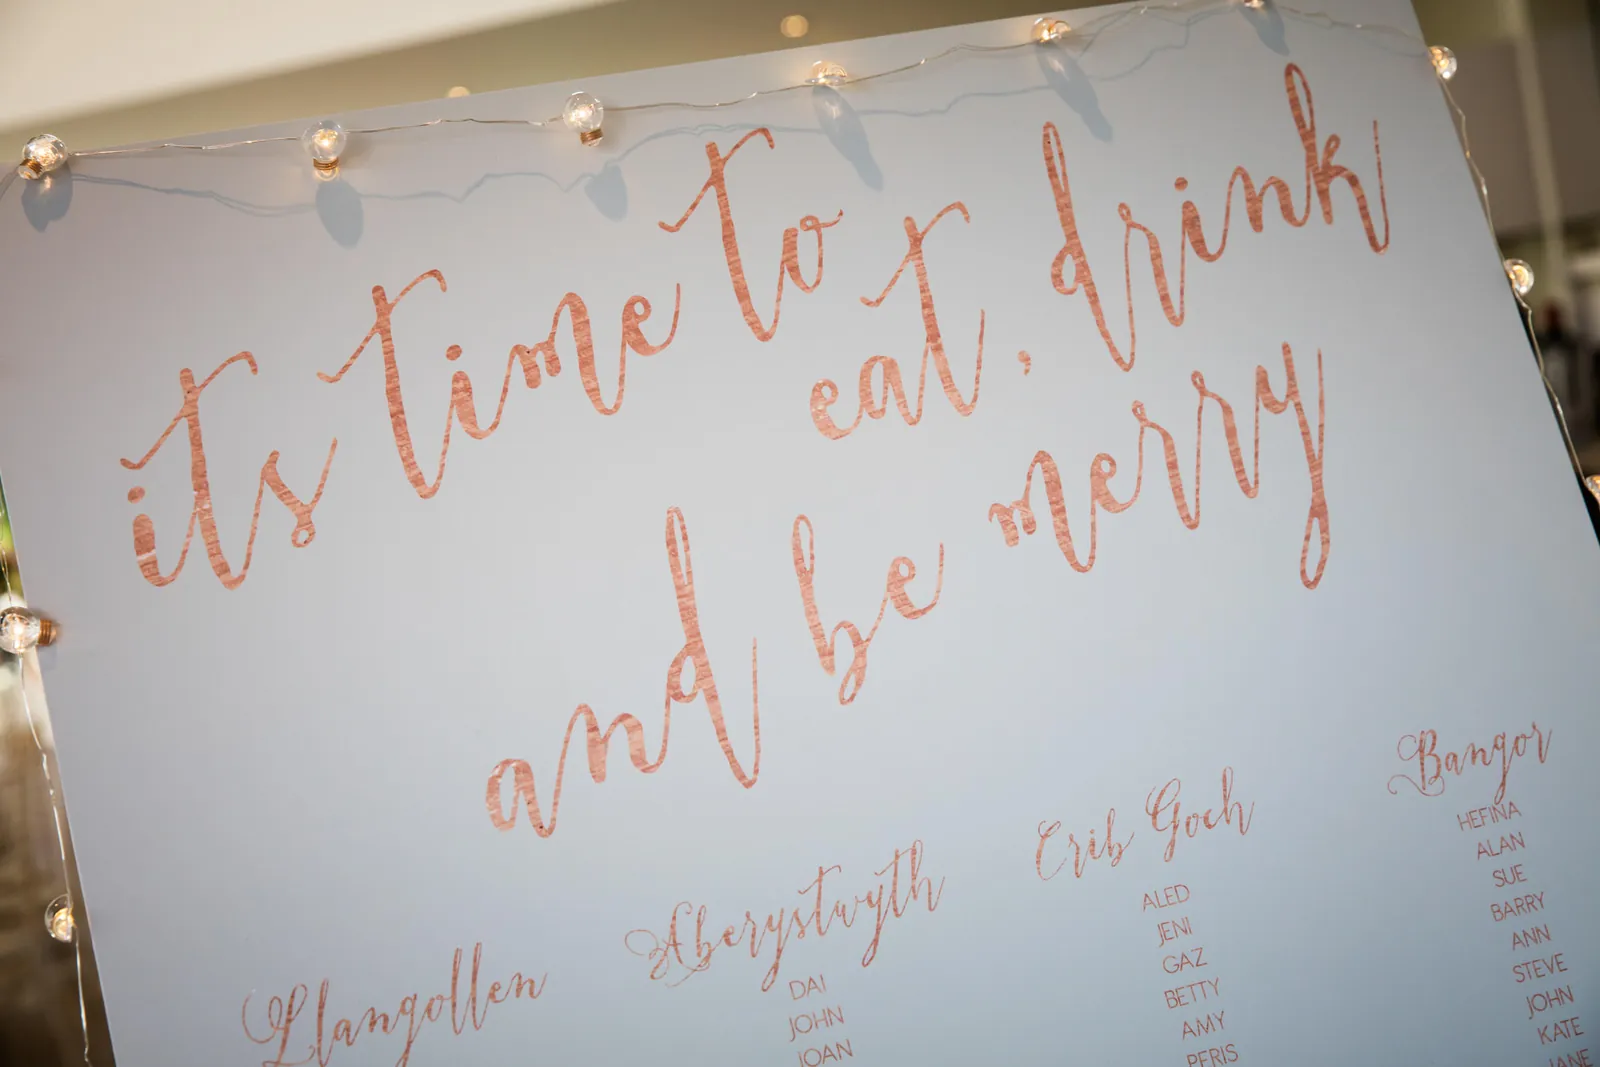 its time to
eat, drink
and be merry
Llangollen
Aberystwyth
DAI
JOHN
JOAN
Crib Goch
ALED
JENI
GAZ
BETTY
AMY
PERIS
Bangor
HEFINA
ALAN
SUE
BARRY
ANN
STEVE
JOHN
KATE
JANE